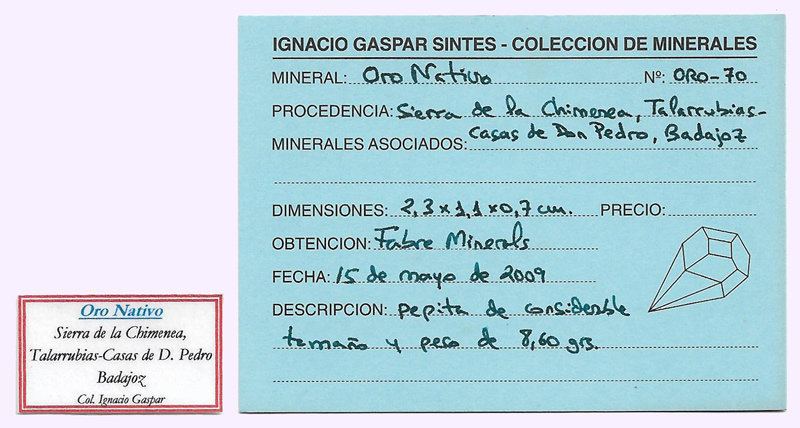 IGNACIO GASPAR SINTES - COLECCION DE MINERALES
MINERAL: Oro Nativo Nº: ORO-70
PROCEDENCIA: Sierra de la Chimenea, Talarrubias-
MINERALES ASOCIADOS: Casas de Don Pedro, Badajoz
DIMENSIONES: 2,3 x 1,1 x 0,7 cm. PRECIO:
OBTENCION: Fabre Minerals
FECHA: 15 de mayo de 2009
DESCRIPCION: pepita de considerable
tamaño y peso de 8,60 grs.
Oro Nativo
Sierra de la Chimenea,
Talarrubias-Casas de D. Pedro
Badajoz
Col. Ignacio Gaspar